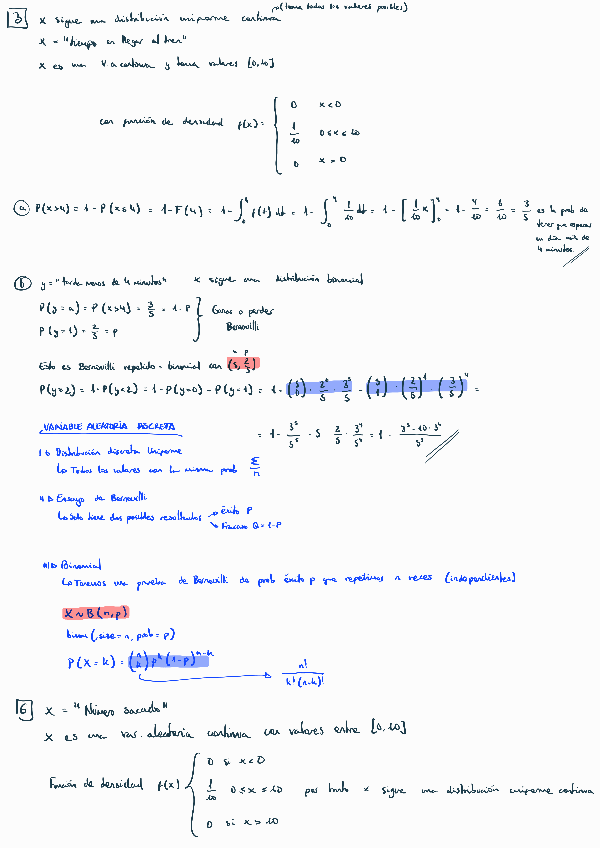 (toma todos los valores posibles)
3 x sigue una distribución uniforme continua
x = "tiempo en llegar al tren"
x es una V a continua y toma valores [0,10]
con función de densidad f(x) = { 0 x<0
1/10 0≤x≤10
0 x>0
a P(x>4) = 1-P(x≤4) = 1-F(4) = 1-∫₀⁴ f(t) dt = 1-∫₀⁴ 1/10 dt = 1-[1/10 x]₀⁴ = 1-4/10 = 6/10 = 3/5 es la prob de
tener que esperar
un día más de
4 minutos
b y = "tarda menos de 4 minutos" x sigue una distribución binomial
P(y=0) = P(x>4) = 3/5 = 1-P } Ganas o perder
P(y=1) = 2/5 = P Bernouilli
n P
Esto es Bernouilli repetido = binomial con (5, 2/5)
P(y≥2) = 1-P(y<2) = 1-P(y=0) - P(y=1) = 1-(5 0)·2⁰/5·3⁵/5 - (5 1)·(2/5)¹·(3/5)⁴ =
= 1 - 3⁵/5⁵ - 5 · 2/5 · 3⁴/5⁴ = 1 - 3⁵-10·3⁴/5⁵
VARIABLE ALEATORIA DISCRETA
Distribución discreta Uniforme
Todos los valores con la misma prob
Ensayo de Bernouilli
Solo tiene dos posibles resultados → éxito P
→ Fracaso Q=1-P
Binomial
Tenemos una prueba de Bernouilli de prob éxito p que repetimos n veces (independientes)
X ~ B(n,p)
binom(,size=n, prob=p)
P(X=k) = (n k) pᵏ (1-p)ⁿ⁻ᵏ → n!/k!(n-k)!
6 x = "Número sacado"
x es una var. aleatoria continua con valores entre [0,10]
Función de densidad f(x) { 0 si x<0
1/10 0≤x≤10 por tanto x sigue una distribución uniforme continua
0 si x>10